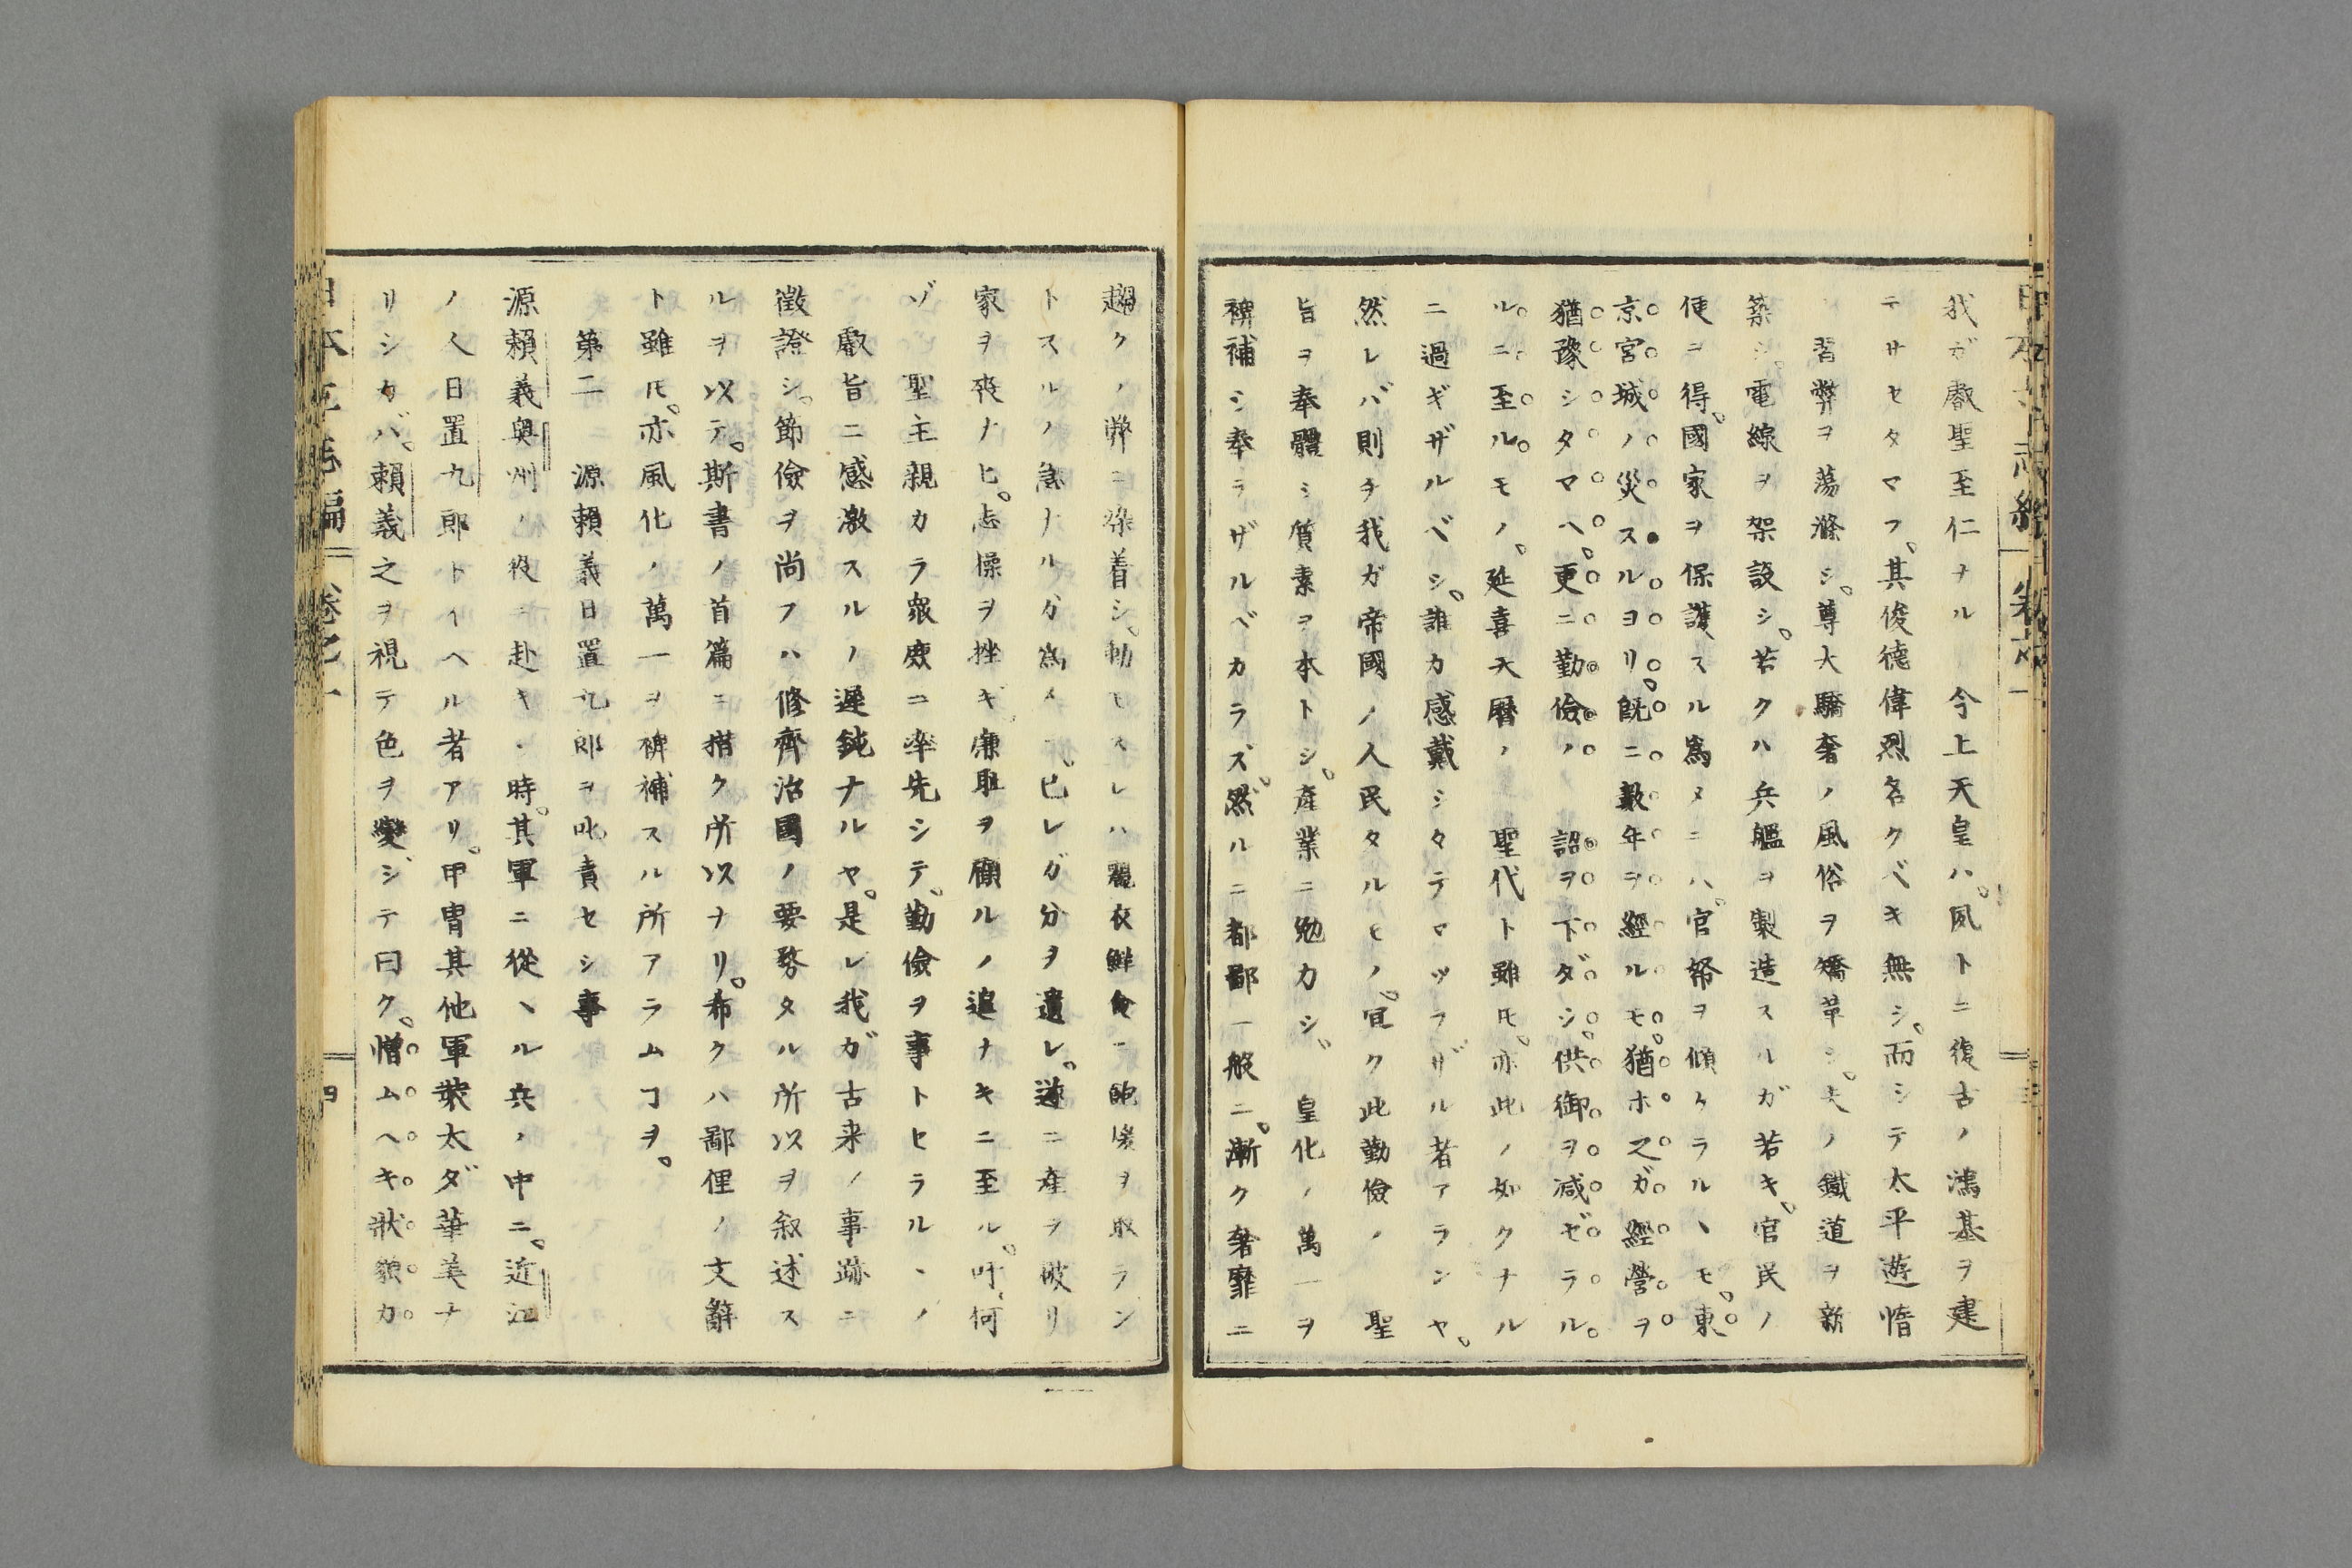 我ガ叡聖至仁ナル　今上天皇ハ。夙トニ復古ノ鴻基ヲ建
テサセタマフ。其俊德偉烈名クベキ無シ。而シテ太平遊惰
ノ習弊ヲ蕩滌シ。尊大驕奢ノ風俗ヲ矯革シ。夫ノ鐵道ヲ新
築シ。電線ヲ架設シ。若クハ兵艦ヲ製造スルガ若キ。官民ノ
便ヲ得。國家ヲ保護スル爲メニハ。官帑ヲ傾ケラルヽモ。東
京宮城ノ災スルヨリ。既ニ數年ヲ經ルモ。猶ホ之ガ經營ヲ
猶豫シタマヘ。更ニ勤儉ノ　詔ヲ下ダシ。供御ヲ减ゼラル
ルニ至ルモノ。延喜天曆ノ　聖代ト雖𪜈。亦此ノ如クナル
ニ過ギザルベシ。誰カ感戴シタテマツラザル者アランヤ。
然レバ則チ我ガ帝國ノ人民タルモノ。宜ク此勤儉ノ　聖
旨ヲ奉體シ質素ヲ本トシ。產業ニ勉力シ。　皇化ノ萬一ヲ
裨補シ奉ラザルベカラズ。然ルニ都鄙一般ニ。漸ク奢靡ニ
趨クノ弊ニ染着シ。動モスレハ麗衣鮮食ニ飽煖ヲ取ラン
トスルノ急ナルガ爲メニ。已レガ分ヲ遺レ。遂ニ產ヲ破リ
家ヲ喪ナヒ。志操ヲ挫ギ。廉耻ヲ顧ルノ遑ナキニ至ル。吁。何
ゾ　聖主親カラ衆庶ニ率先シテ。勤儉ヲ事トセラルヽノ
叡旨ニ感激スルノ遲鈍ナルヤ。是レ我ガ古来ノ事跡ニ
徵證シ。節儉ヲ尚フハ修齊治國ノ要務タル所以ヲ叙述ス
ルヲ以テ。斯書ノ首篇ニ揩ク所以ナリ。希クハ鄙俚ノ文辭
ト雖𪜈。亦風化ノ萬一ヲ裨補スル所アラムヿヲ。
第二　源賴義日置九郎ヲ叱責セシ事
源賴義奥州ノ役ニ赴キシ時。其軍ニ從ヽル兵ノ中ニ。近江
ノ人日置九郎トイヘル者アリ。甲冑其他軍裝太ダ華美ナ
リシカバ。賴義之ヲ視テ色ヲ變ジテ曰ク。憎ムヘキ狀貌カ
卷之一
四